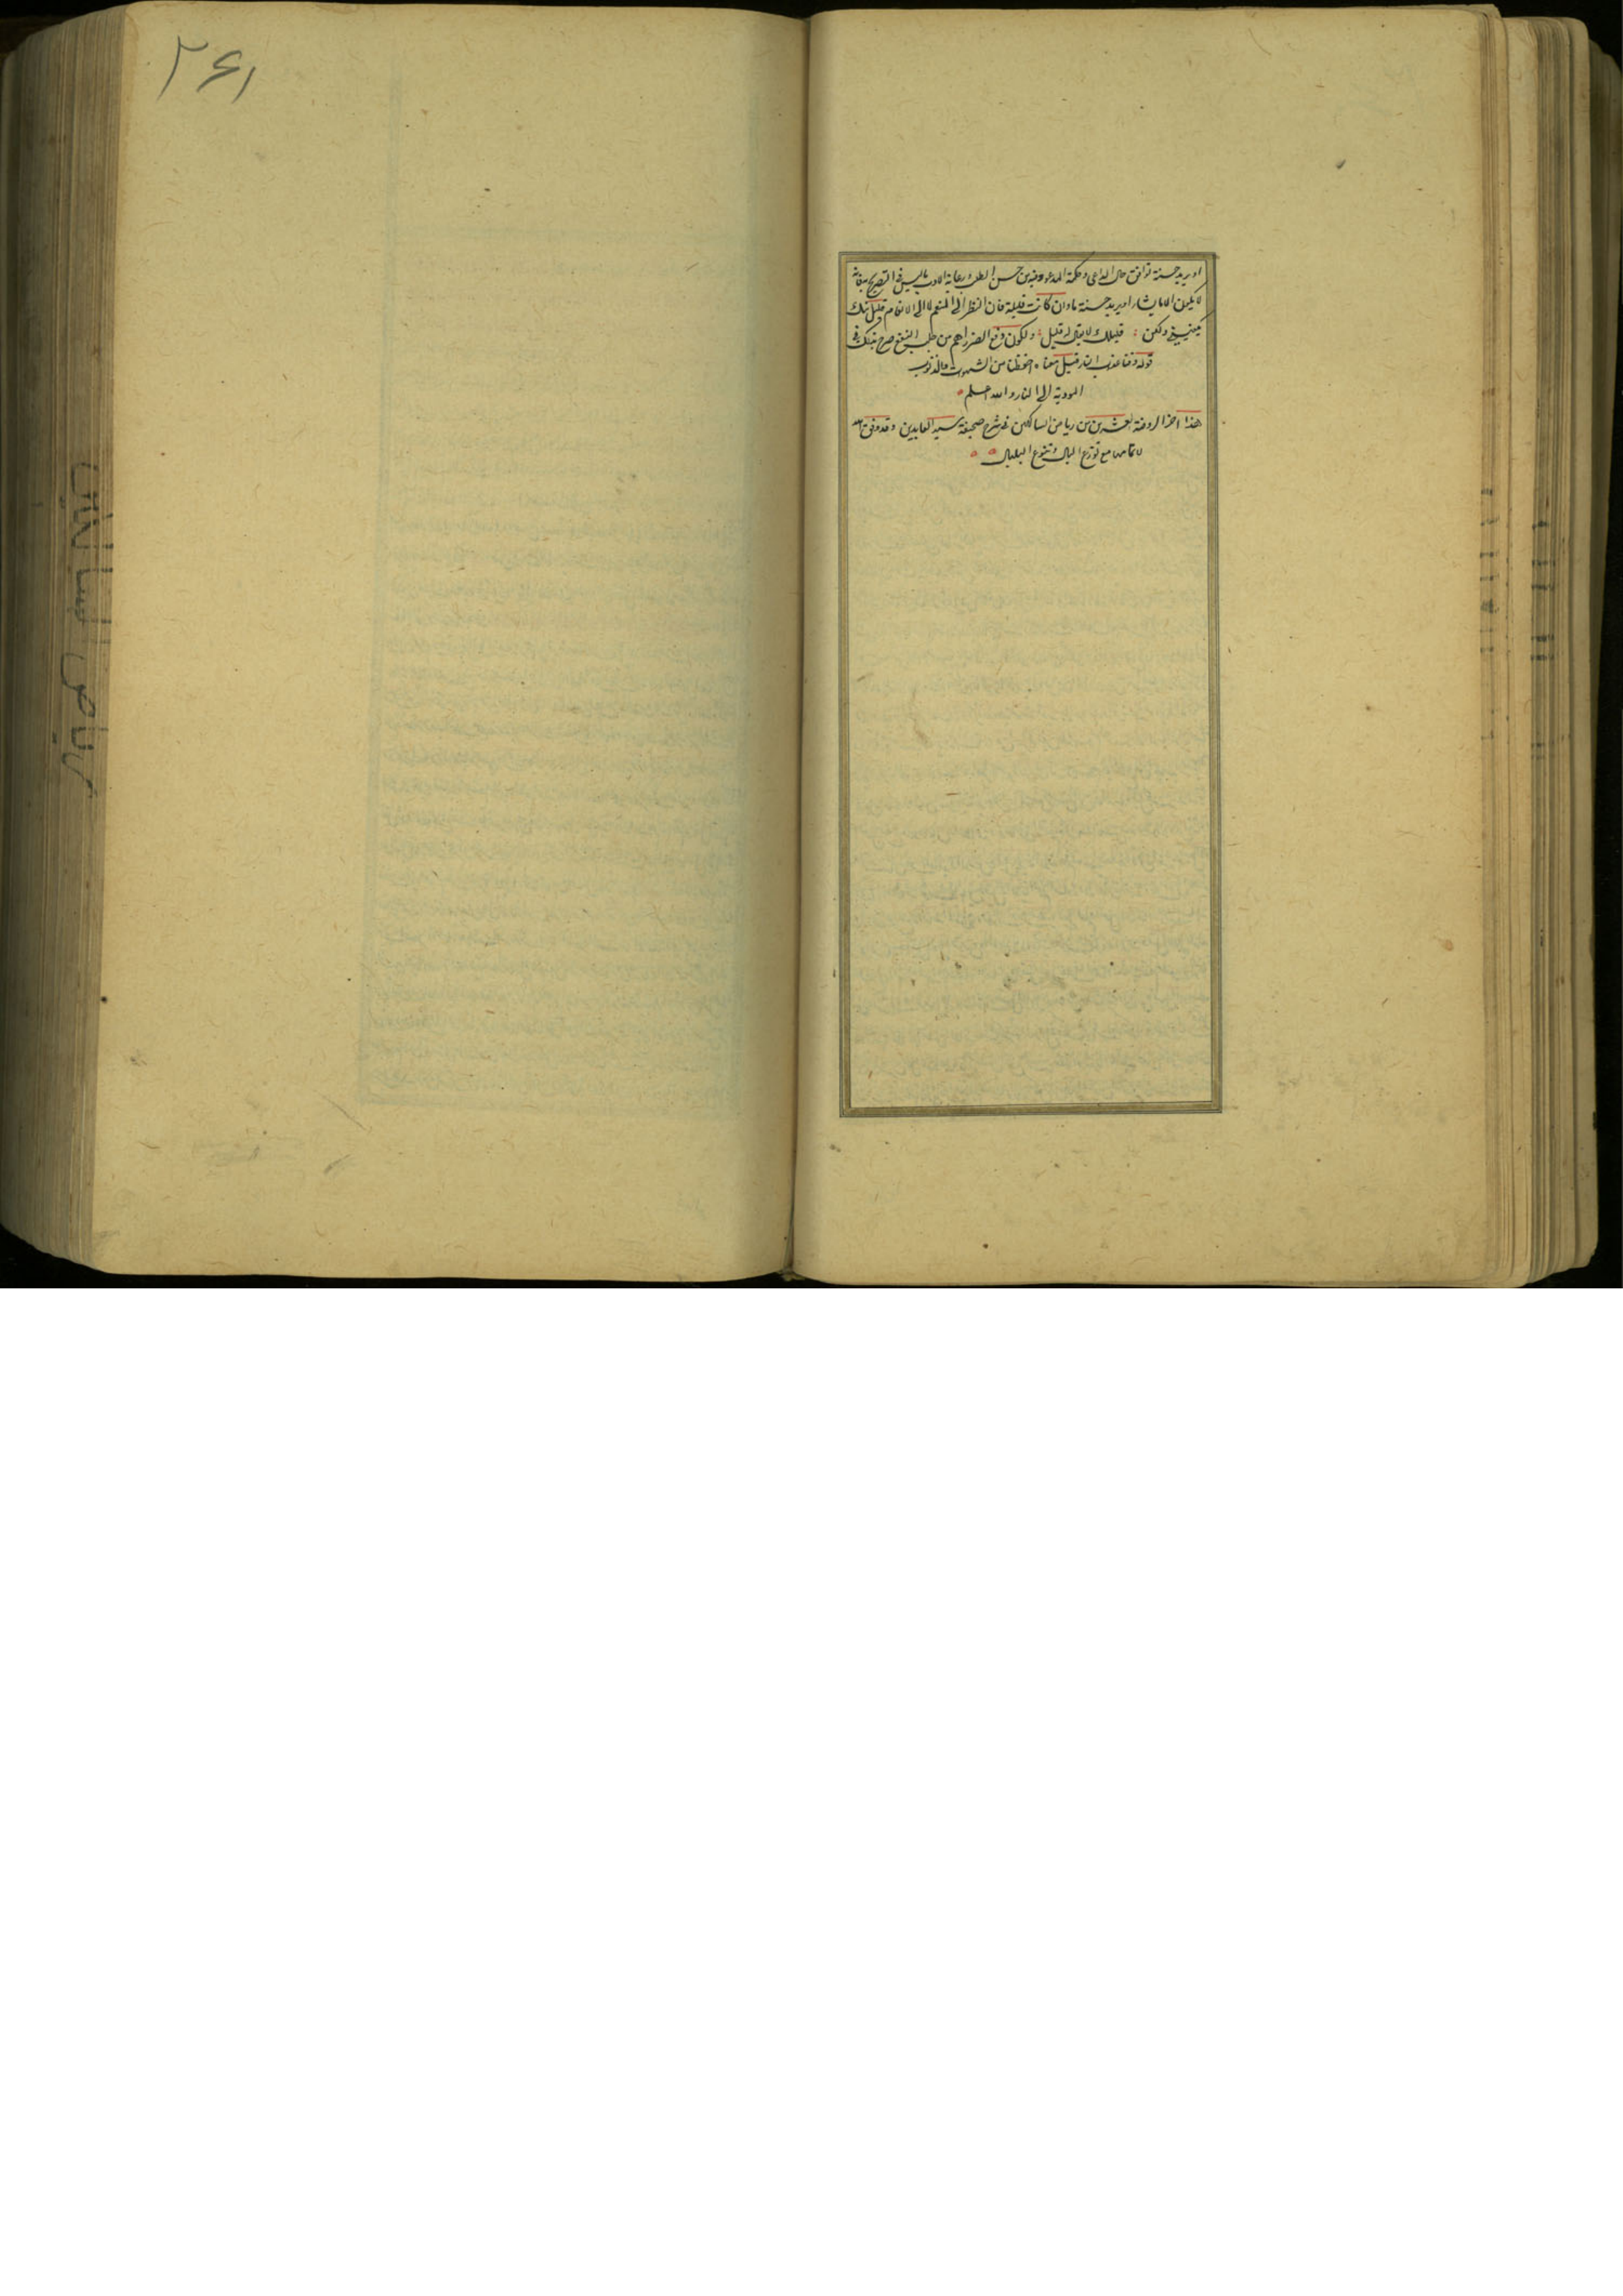 او يريد حسنة توافق حال الداعي وحكمة المدعو وفيه من حسن الطلب ورعاية الادب ما ليس في التصريح به فانه
لا يكون الا ما يشاء او يريد حسنة ما وان كانت قليلة فان النظر الى المنعم لا الى الانعام قليل منك
يكفيني ولكن : قليلك لا يقال له قليل : ولكون دفع الضرر اهم من جلب النفع صرح بذلك في
قوله وقنا عذاب النار قيل معناه احفظنا من الشهوات والذنوب
المودية الى النار والله اعلم
هذا آخر الروضة العشرين من رياض السالكين في شرح صحيفة سيد العابدين وقد وفق الله
لاتمامها مع توزع البال وتنوع البلبال
۲۶۱
رياض السالكين